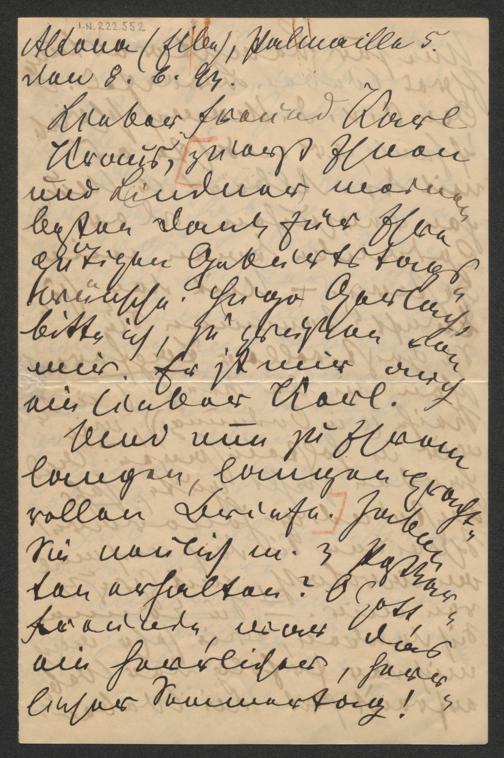 I.N. 222.552
Altona (Elbe), Palmaille 5.
den 8. 6. 94.
Lieber Freund Karl
Kraus, zuerst Ihnen
und Lindner meinen
besten Dank für Ihre
gütigen Geburtstags-
wünsche. Hugo Gerlach,
bitte ich, zu grüßen von
mir. Er ist mir auch
ein lieber Kerl.
Und nun zu Ihrem
langen, langen pracht-
vollen Briefe. Haben
Sie neulich m. 3
erhalten? O Gott,
Freunde, war das
ein herrlicher, herr-
licher Sommertag!